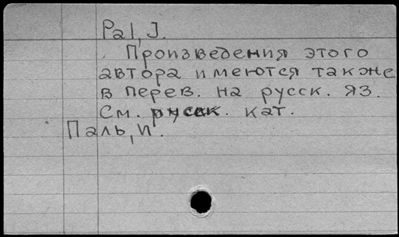 Pal, J.
Произведения этого
автора имеются также
в перев. на русск. яз.
См. русск. кат.
Паль, И.